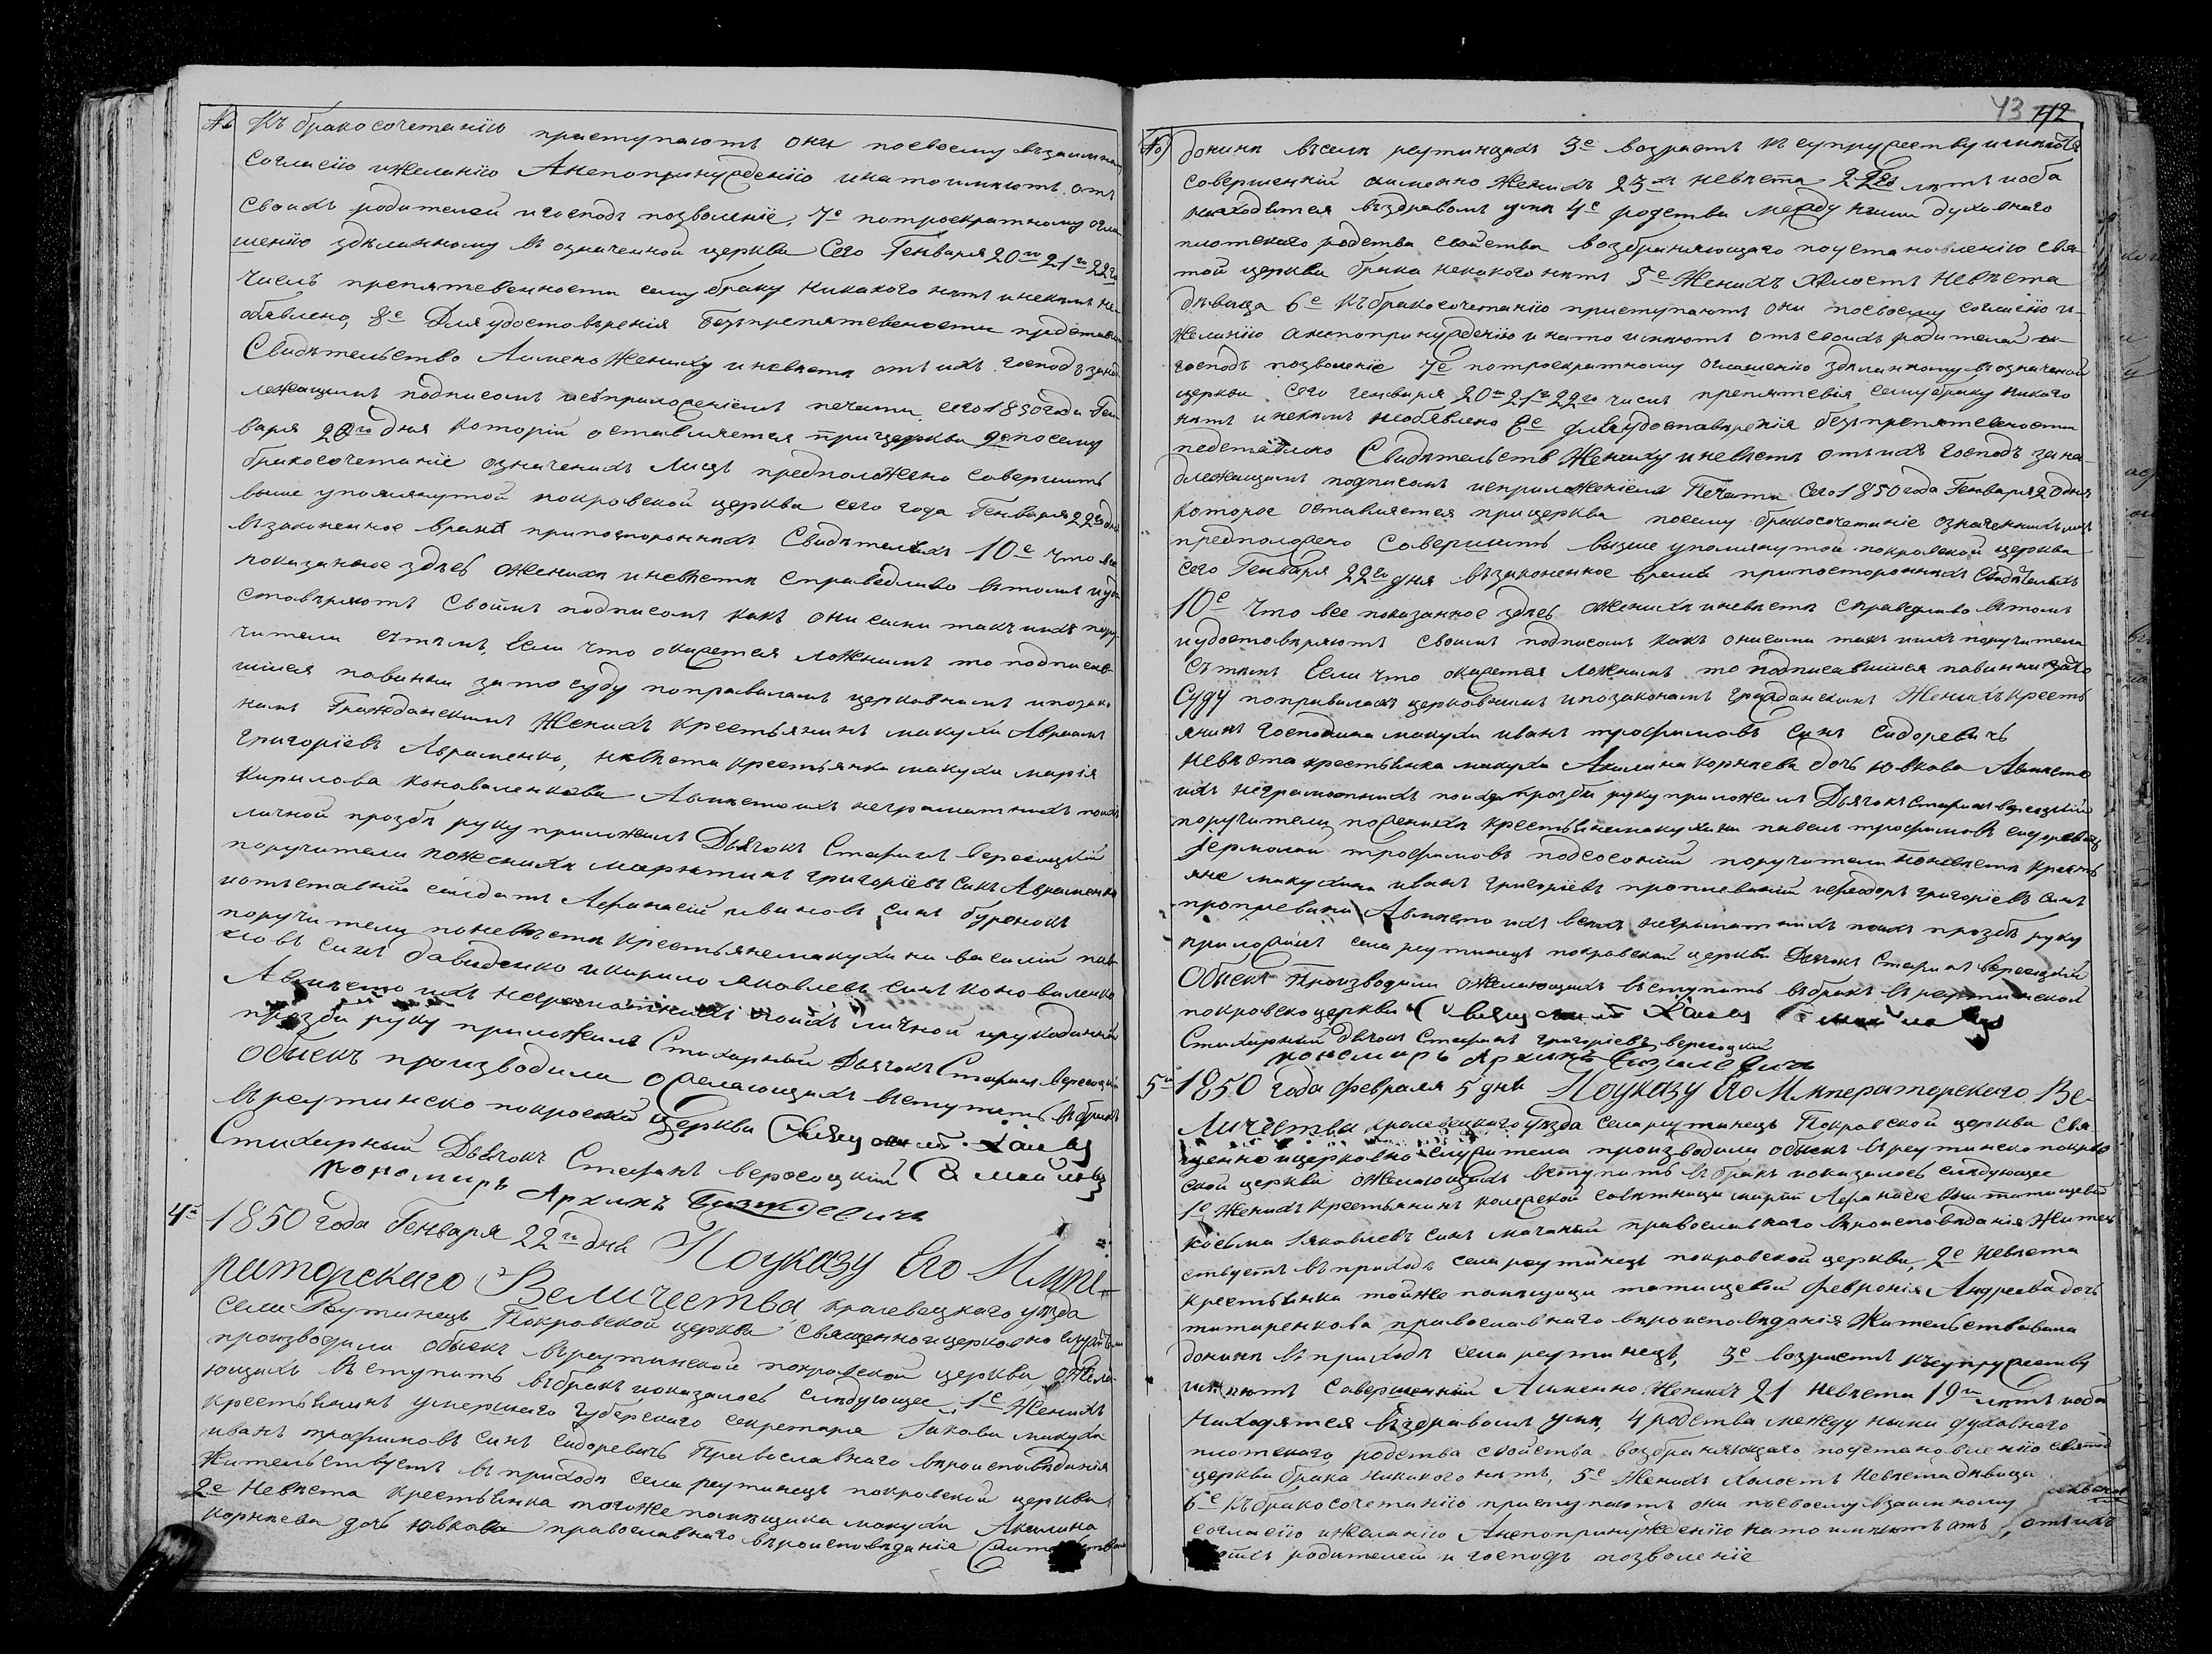 № Къ бракосочетанію приступаютъ они посвоему взаимному
согласію ижеланію Анепопринужденію инатоимѣютъ отъ
своихъ родителей игосподъ позволеніе, 7е потроекратному огла
шенію здѣланному въ означенной церкви Сего Генваря 20го 21го 22го
числъ препятевенности сему браку никакого нѣтъ инекимъ не
обявлено, 8е Для удостовѣренія безъпрепятевености
Свидѣтельство Аимено Жениху иневѣстѣ отъ ихъ господъ зана
лежащимъ подписомъ исприложеніемъ печати сего 1850 года Ген
варя 20го дня которій оставляется прицеркви 9е посему
бракосочетаніе означенихъ Лицъ предположено совершить
выше упомянутой покровской церкви сего года Генваря 22го дня
взаконенное время припостороннихъ Свидѣтеляхъ 10е что все
показанное здѣсь Оженихѣ иневѣстѣ справедливо втомъ иудо
стовѣряютъ своимъ подписомъ какъ они сами такъ иихъ пору
чители сътѣмъ, Если что окажется ложнимъ то подписав
шіися повинни зато суду поправиламъ церковнымъ ипозако
намъ Гражданскимъ Женихъ крестьянинъ макухи Авраамъ
Григоріевъ Авраменко, невѣста крестьянка макухи марія
Кирилова коноваленкова Авмѣсто ихъ неграматнихъ поихъ
личной прозбѣ руку приложилъ Дьячокъ Стефанъ вересоцкій
поручители поженихѣ мартинъ григоріевъ синъ Авраменко
иотъставній салдатъ Афанасій ивановъ синъ буренокъ
поручители поневѣстѣ крестьянемакухини василій пав
ловъ синъ давиденко икирило яковлевъ синъ коноваленко
Авмѣсто ихъ неграмотнихъ поихъ личной ирукоданной
прозби руку приложилъ Стихарный Дьячокъ Стефанъ вересоцкій
Обыскъ производили Ожелающихъ вступить вбракъ
вреутинско покровской Церкви Священникъ
Стихирный Дьячокъ Стефанъ вересоцкій
пономарь Архипъ
4й 1850 года Генваря 22го дня Поуказу Его Импе
раторскаго Величества, кролевецкого уѣзда
Села Реутинецъ Покровской церкви священноицерковно служители
производили обыскъ вреутинской покровской церкви, Ожела
ющихъ вступить вбракъ ипоказалось слѣдующее 1е Женихъ
крестьянинъ умершаго губерского секретаря Іакова макухи
иванъ трофимовъ синъ сидоревичъ Православнаго вѣроисповѣданія
Жительствуетъ вприходѣ села реутинецъ покровской церкви
2е Невѣста крестьянка тогоже помѣщика макухи Акилина
корнѣева дочь Ювкова православнаго вѣроисповѣданія
43 42
№ донинѣ всели реутинцахъ 3е возрастъ къ супружеству имѣютъ
совершенній аименно Женихъ 23хъ невѣста 22хъ лѣтъ иоба
находятся въздравомъ умѣ 4е родства между ними духовнаго
плотскаго родства свойства возбраняющаго поустановленію Свя
той церкви брака некакого нѣтъ 5е Женихъ Холостъ Невѣста
дѣвица 6е Къ бракосочетанію приступаютъ они посвоему согласію и
желанію анепопринужденію инато имѣютъ отъ своихъ родителей и
господъ позволеніе 7е потроекратному оглашенію здѣланному вьозначеной
церкви Сего генваря 20го 21го 22го числъ препятевія семубраку никаго
нѣтъ инекимъ необявлено 8е для удостовѣренія безъпрепятевености
педставлено Свидѣтельств Жениху иневѣстѣ отъ ихъ господъ зана
длежащимъ подписомъ исприложеніемъ Печати Сего 1850 года Генваря 20 дня
которое оставляется прицеркви посему бракосочетаніе означеннихъ лицъ
предположено Совершить вышше упомянутой покровской церкви
сего Генваря 22го дня взаконенное время припостороннихъ Свидѣтеляхъ
10е что все показанное здѣсь Оженихѣ иневѣстѣ справедливо втомъ
иудостовѣряютъ своимъ подписомъ какъ онисами такъ иихъ поручители
Сътѣмъ Если что окажется ложнимъ то подписавшіися повинни зато
Суду поправиламъ церковнимъ ипозаконамъ гражданскимъ Женихъ кресть
янинъ господина макухи иванъ трофимовъ Синъ сидоревичъ
невѣста крестьянка макухи Акилина корнѣева дочь Ювкова Авмѣсто
ихъ неграмотнихъ поихъ прозби руку приложилъ Дьячокъ Стефанъ вересоцкій
поручители поженихѣ крестьянемакухини павелъ трофимовъ сидоревичъ
Іермолай трофимовъ поручители поневѣстѣ кресть
яне макухини иванъ григоріевъ ифеодоръ григоріевъ синъ
Авмѣсто ихъ всехъ неграматнихъ поихъ прозбѣ руку
приложилъ села реутинецъ покровской церкви Дьячокъ Стефанъ вересоцкій
Обыскъ Производили Ожелающихъ вступить вбракъ вреутинской
покровско церкви Священникъ
Стихирный дьячокъ Стефанъ григоріевъ вересоцкій
пономарь Архипъ
5й 1850 года февраля 5 дня Поуказу Его Императорского Ве
личества кролевецкого уѣзда села реутинецъ Покровской церкви Свя
щенноицерковно служители производили обыскъ вреутинско покров
ской церкви Ожелающихъ вступить вбракъ ипоказалось слѣдующее
1е Женихъ крестьянинъ колежской совѣтници маріи Афанасіевны татищевой
косьма Іяковлевъ синъ православнаго вѣроисповѣданія Житель
ствуетъ вприходѣ села реутинецъ покровской церкви, 2е Невѣста
крестьянка тойже помѣщици татищевой февронія Андреева дочь
титаренкова православнаго вѣроисповѣданія Жительствовала
донинѣ вприходѣ села реутинецъ, 3е возрастъ къ супружеству
имѣютъ Совершенній Аименно Женихъ 21 невѣста 19ти лѣтъ иоба
Находятся въздравомъ умѣ, 4 родства между ними духовнаго
плотскаго родства свойства возбраняющаго поустановленію святой
церкви брака никакого нѣтъ, 5е Женихъ холостъ Невѣста дѣвица
6е Къ бракосочетанію приступаютъ они посвоему взаимному
согласію ижеланію Анепопринужденію нато имѣютъ отъ
родителей и господъ позволеніе